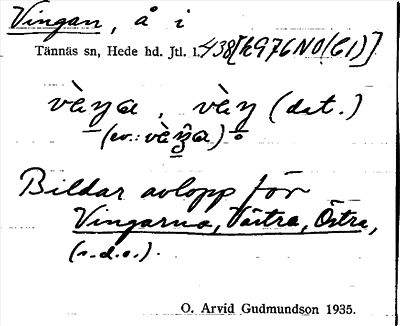 Vingan, å i
Tännäs sn, Hede hd. Jtl. l. 438[h976NO(61)]
vὰŋa, vὰŋ (dat.)
(ev.: vὰŋ̂a)
Bildar avlopp för
Vingarna, Västra, Östra,
(s.d.o.).
O. Arvid Gudmundson 1935.